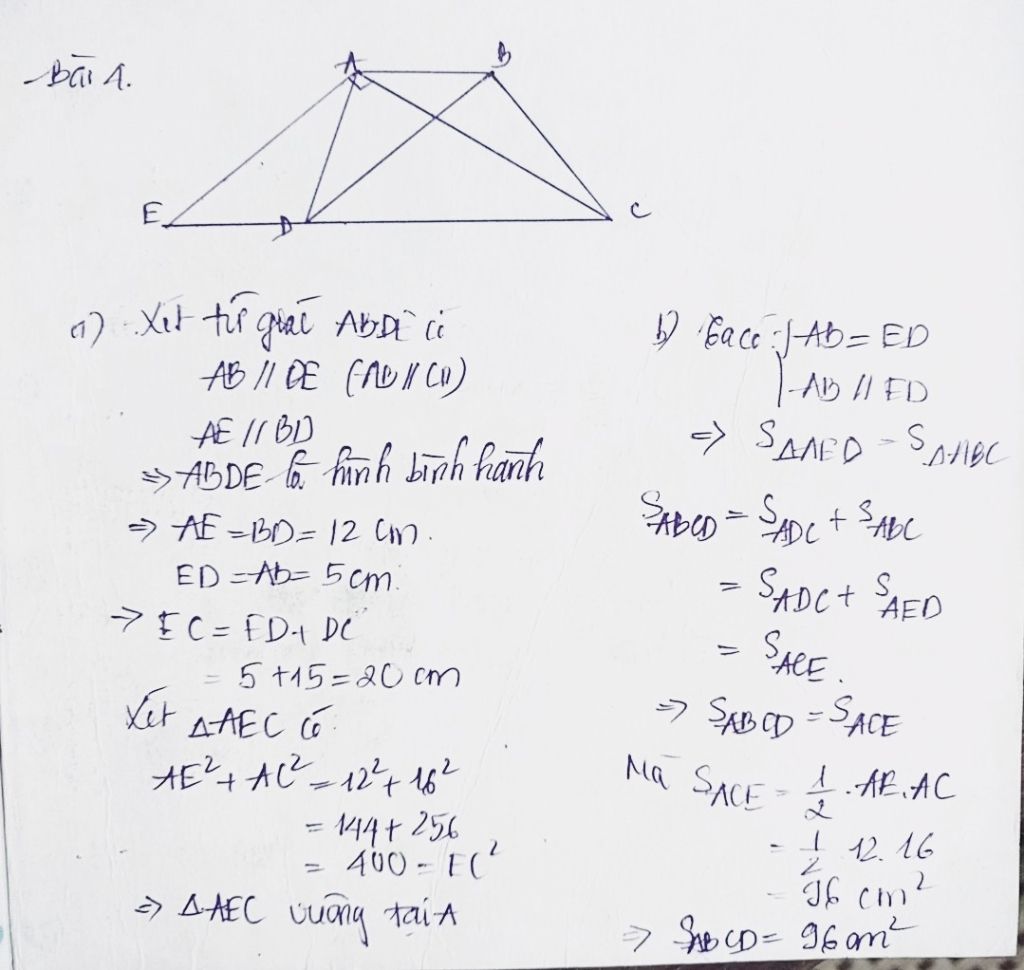 Bài 1.
A B
E D C
a) Xét tứ giác ABDE có
AB // DE (AB // CD)
AE // BD
=> ABDE là hình bình hành
=> AE = BD = 12 cm.
ED = AB = 5 cm.
=> EC = ED + DC
= 5 + 15 = 20 cm
Xét ΔAEC có
AE² + AC² = 12² + 16²
= 144 + 256
= 400 = EC²
=> ΔAEC vuông tại A
b) Ta có: { AB = ED
AB // ED
=> S_ΔAED = S_ΔABC
S_ABCD = S_ADC + S_ABC
= S_ADC + S_AED
= S_ACE.
=> S_ABCD = S_ACE
Mà S_ACE = 1/2 . AE . AC
= 1/2 12. 16
= 96 cm²
=> S_ABCD = 96 cm²